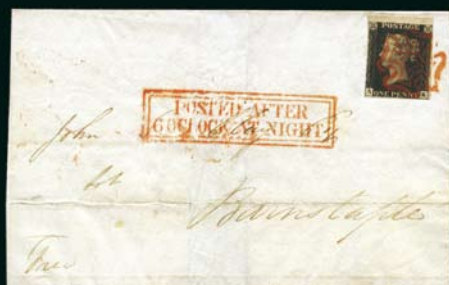 POSTAGE
A ONE PENNY A
POSTED AFTER
6 OCLOCK AT NIGHT
John
Barnstaple